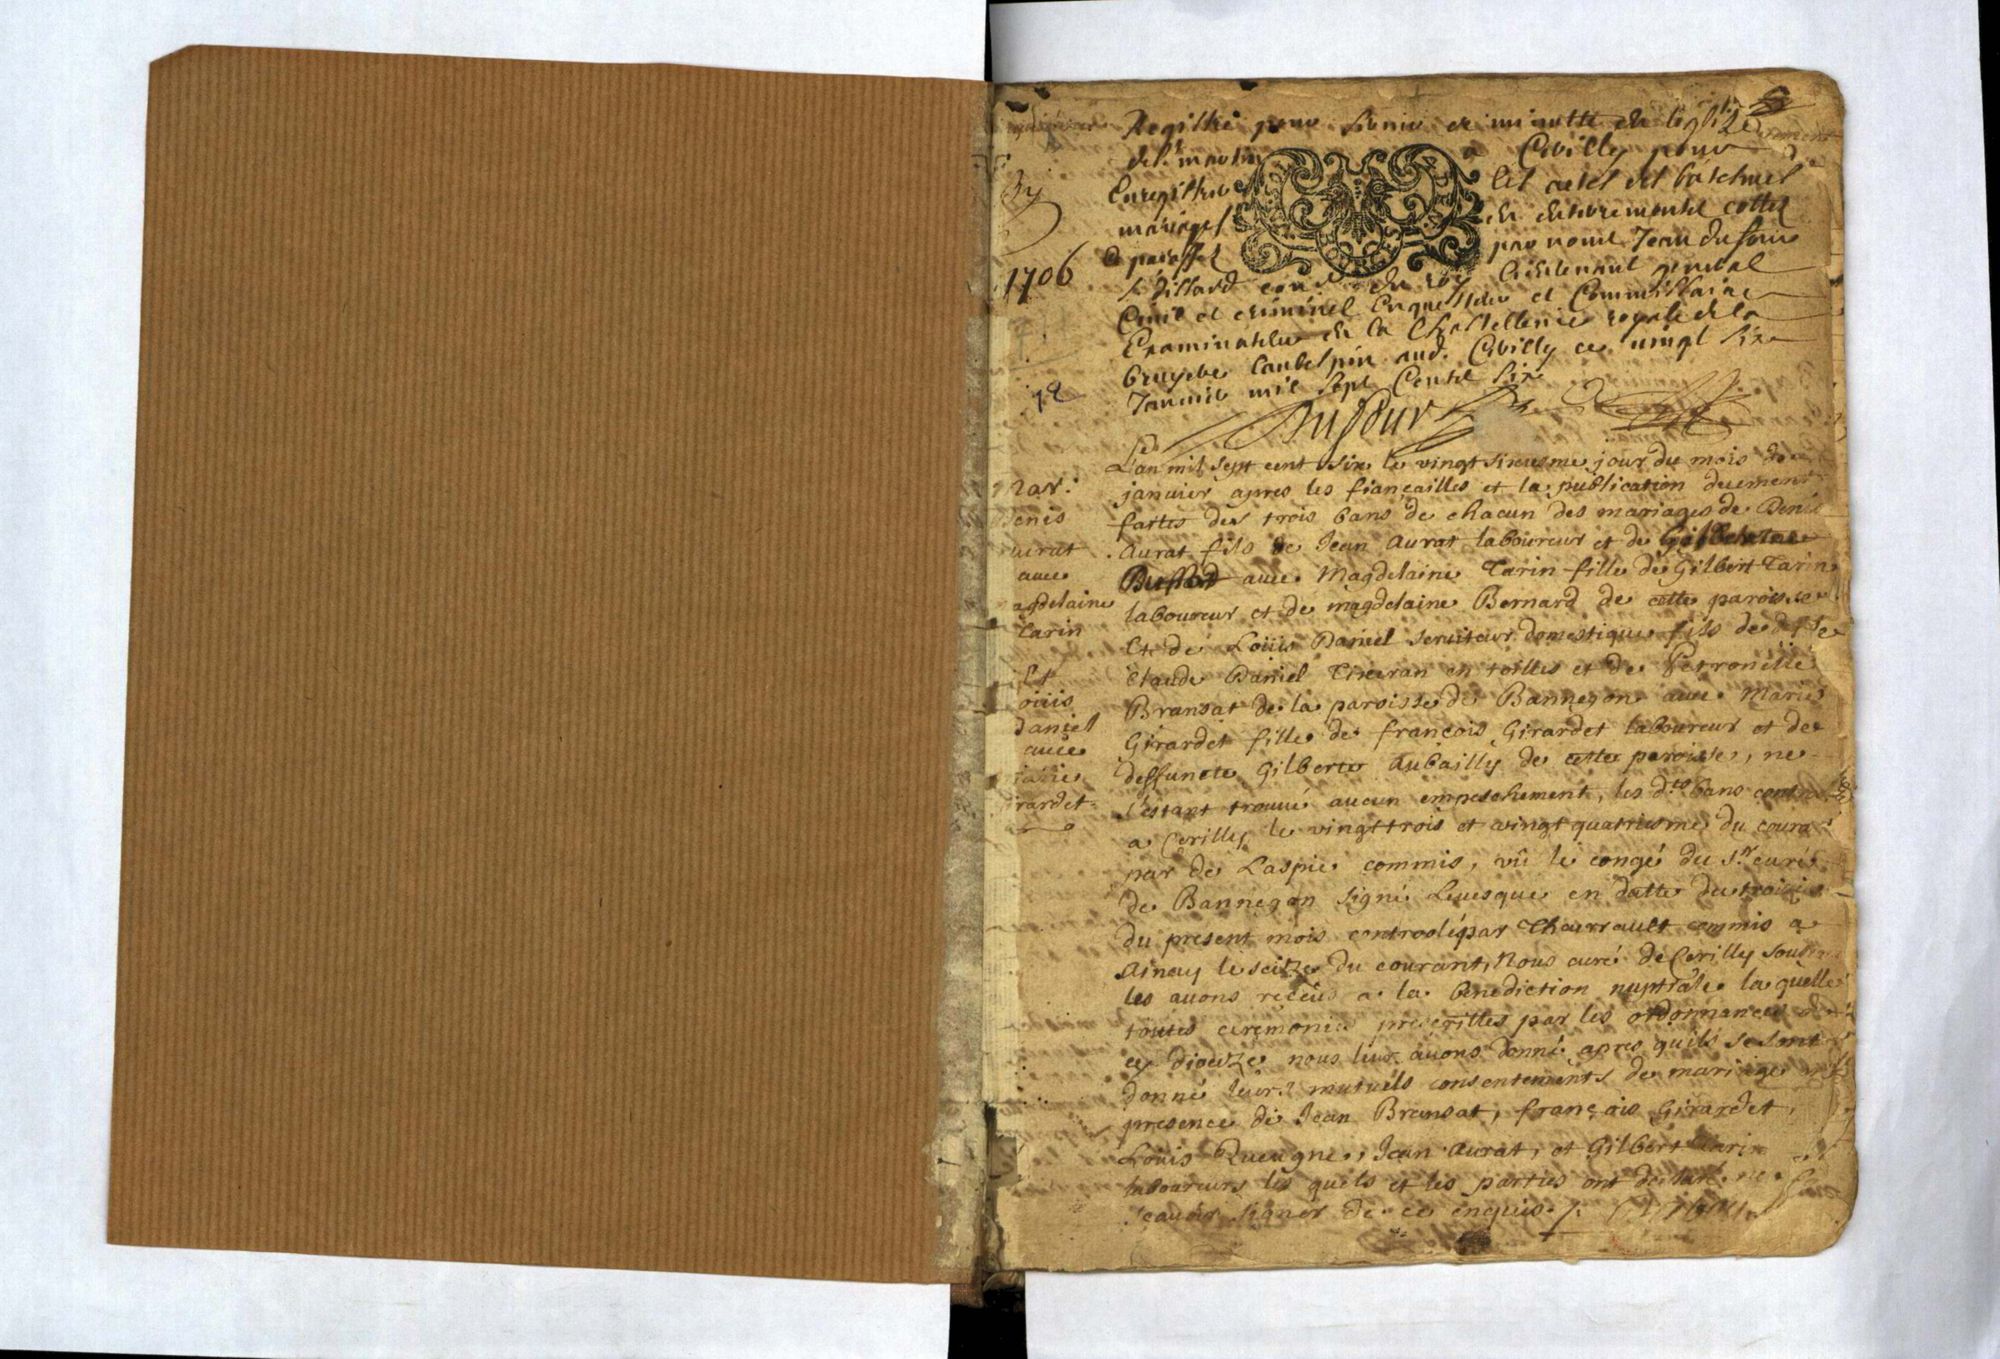 Registre pour servir de minutte de leglize
de St martin a Cerilly pour
Enregistrer les actes des batesmes
mariages et enterrements cottés
Et paraffés par nous Jean dufour
du roy Lieutenant general
Civil et criminel Enquesteur et Commissaire
Examinateur de la Chastellenie royalle de la
bruyere Laubespin aud. Cerilly ce vingt six
Janvier mil sept Cents six
1706
Dufour
L'an mil sept cent six le vingt sixiesme jour du mois de
janvier apres les fiançailles et la publication deuement
faittes des trois bans de chacun des mariages de Denis
Aurat fils de Jean Aurat laboureur et de
avec Magdelaine Tarin fille de Gilbert Tarin
laboureur et de magdelaine Bernard de cette paroisse
Et de Louis Daniel serviteur domestique fils de
Claude Daniel Tixeran en toilles et de Petronille
Bransat de la paroisse de Bannegon avec Marie
Girardet fille de françois Girardet laboureur et de
deffuncte Gilberte Aubailly de cette paroisse, ne
s'estant trouvé aucun empeschement, les dts bans
a Cerilly le vingt trois et vingt quatriesme du
par de Laspie commis, vû le congé du Sr curé
de Bannegon signé Levesque en datte du
du present mois controolé par Thaurrault commis a
Ainay le seize du courant, Nous curé de Cerilly
les avons receus a la benediction nuptiale laquelle
toutes ceremonies prescrittes par les ordonnances
ce dioceze nous leur avons donné apres quils se sont
donné leurs mutuels consentements de mariage
presence de Jean Bransat, françois Girardet,
Louis Queugne, Jean Aurat, et Gilbert Tarin
laboureurs les quels et les parties ont declaré ne
sçavoir signer de ce enquis
mar.
denis
aurat
avec
magdelaine
Tarin
Et
Louis
daniel
avec
marie
Girardet